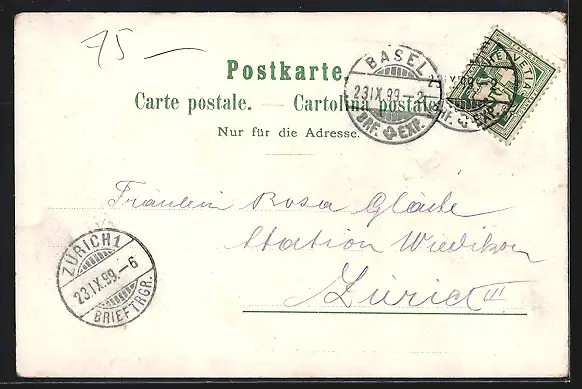 75 —
Postkarte.
Carte postale. — Cartolina postale.
Nur für die Adresse.
BASEL 2
23.IX.99.-2
BRF. EXP.
HELVETIA
Fräulein Rosa Gläsle
Station Wiedikon
Zürich III
ZÜRICH 1
23.IX.99.-6
BRIEFTRGR.